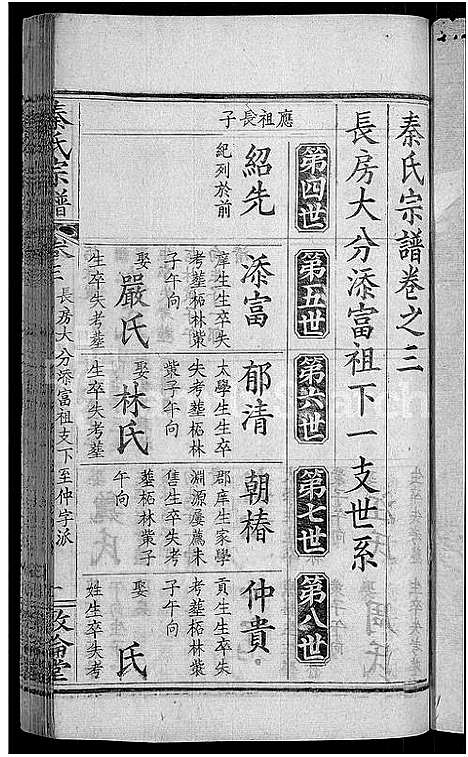 秦氏宗譜卷之三
長房大分添富祖下一支世系
第四世
第五世
第六世
第七世
第八世
應祖長子
紹先
紀列於前
添富
庠生生卒失
考葬柘林𦮼
子午向
娶嚴氏
生卒失考葬
郁清
太學生生卒
失考葬柘林
𦮼子午向
娶林氏
生卒失考葬
朝椿
郡庠生家學
淵源屢薦未
售生卒失考
葬柘林𦮼子
午向
仲貴
貢生生卒失
考葬柘林𦮼
子午向
娶 氏
姓生卒失考
秦氏宗譜
卷三
長房大分添富祖支下至仲字派
一
敦倫堂